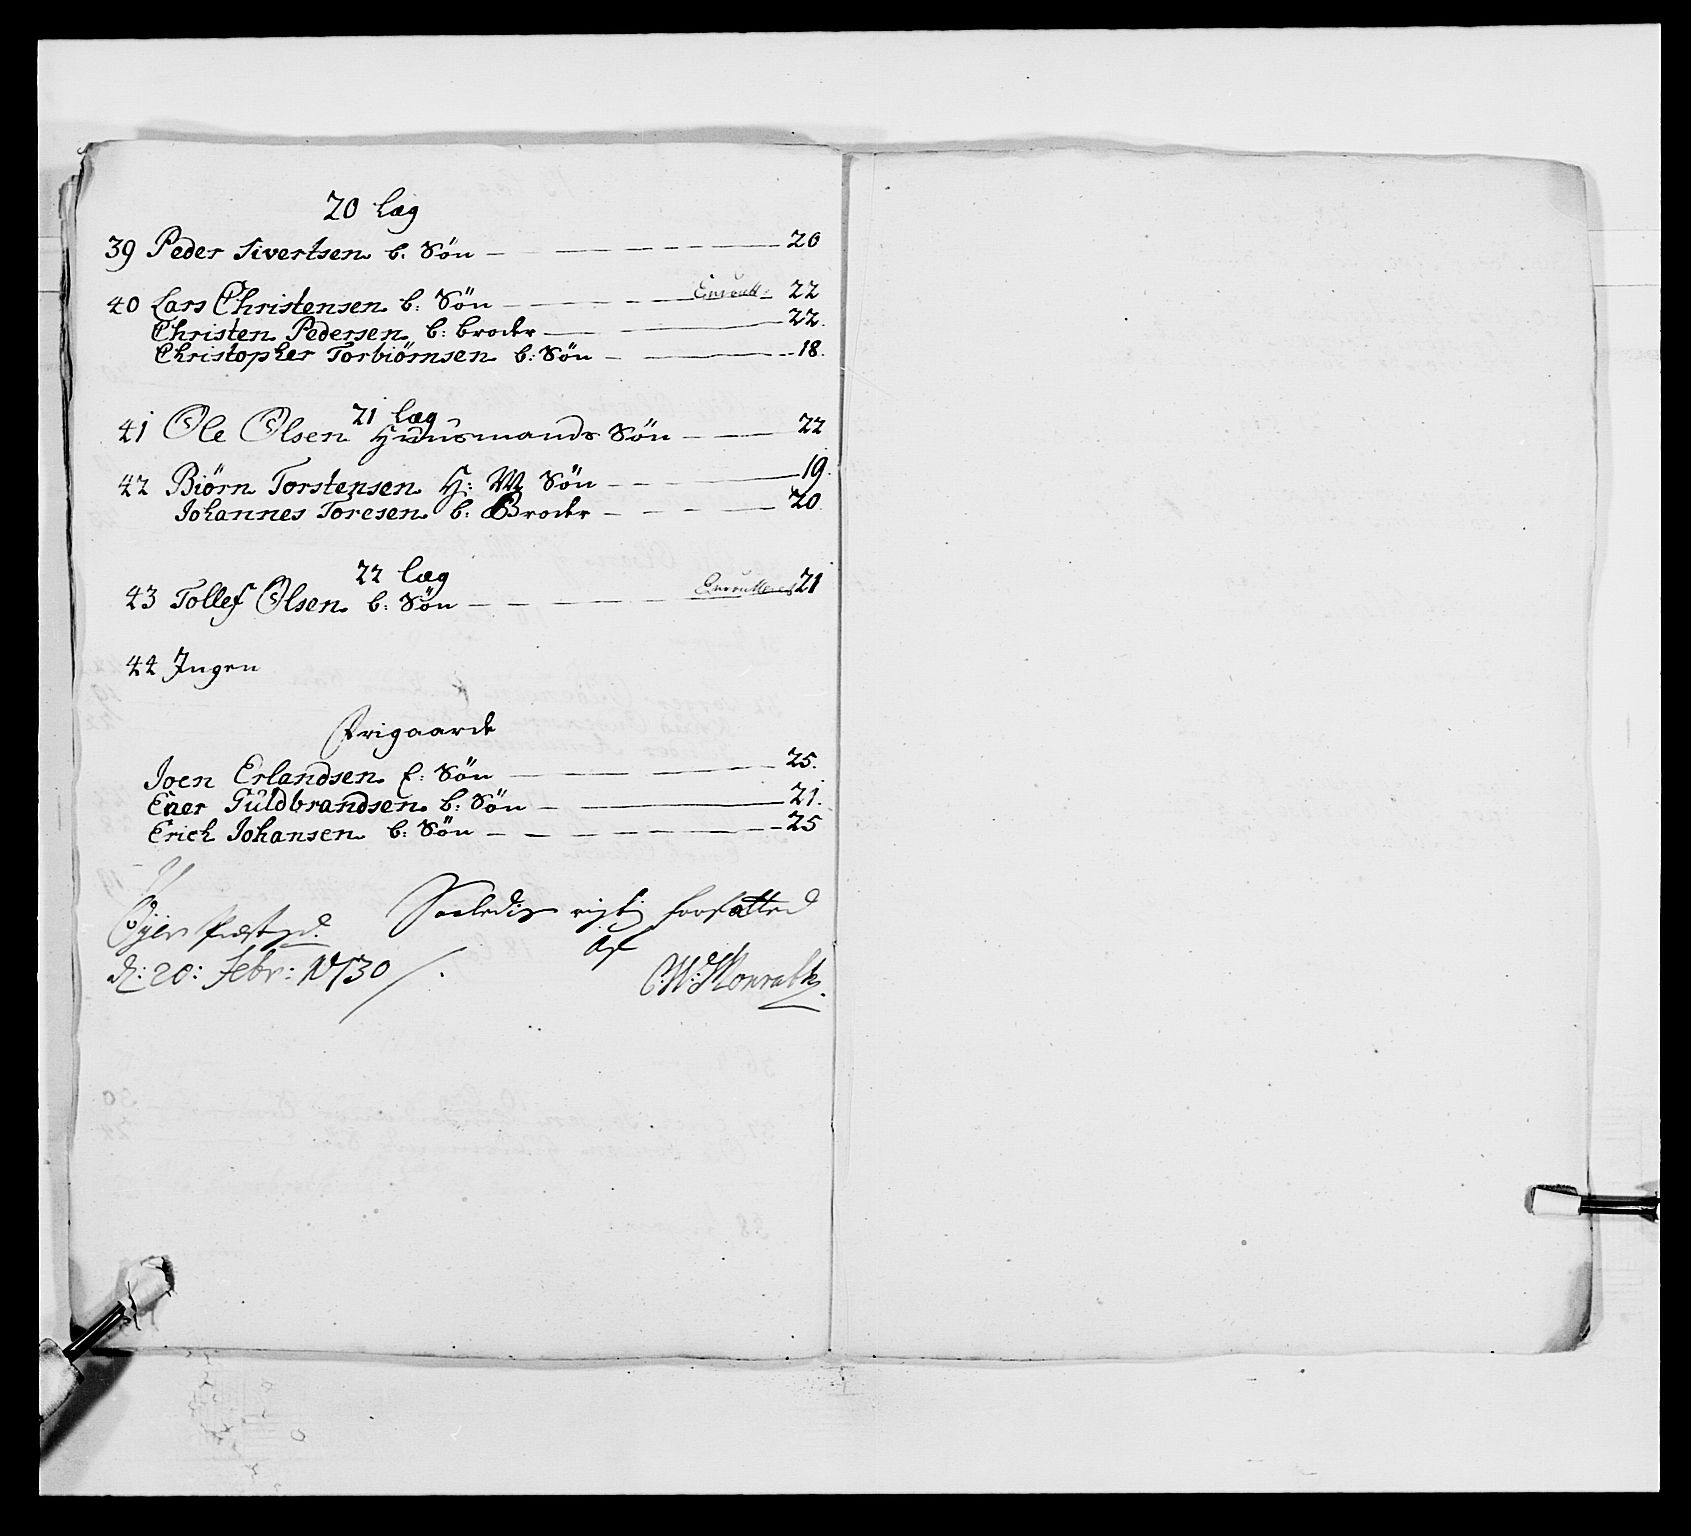 20 Læg
39 Peder Sivertsen b: Søn — — — — — — 20
40 Lars Christensen b: Søn — — — Enroull: 22
Christen Pedersen b: broder — — — 22.
Christopher Torbiørnsen b: Søn — — — 18.
21 Læg
41 Ole Olsen Huusmands Søn — — — 22
42 Biørn Torstensen H: M Søn — — — 19.
Johannes Toresen b: Broder — — — — 20
22 Læg
43 Tollef Olsen b: Søn — — — — Enroulleret 21
44 Ingen
Frigaarde
Joen Erlandsen b: Søn — — — 25.
Ener Guldbrandsen b: Søn — — — 21.
Erich Johansen b: Søn — — — — 25
Saaledis rigtig forfatted
Øyer Præstgd.
af
d: 20: Febr: 1730